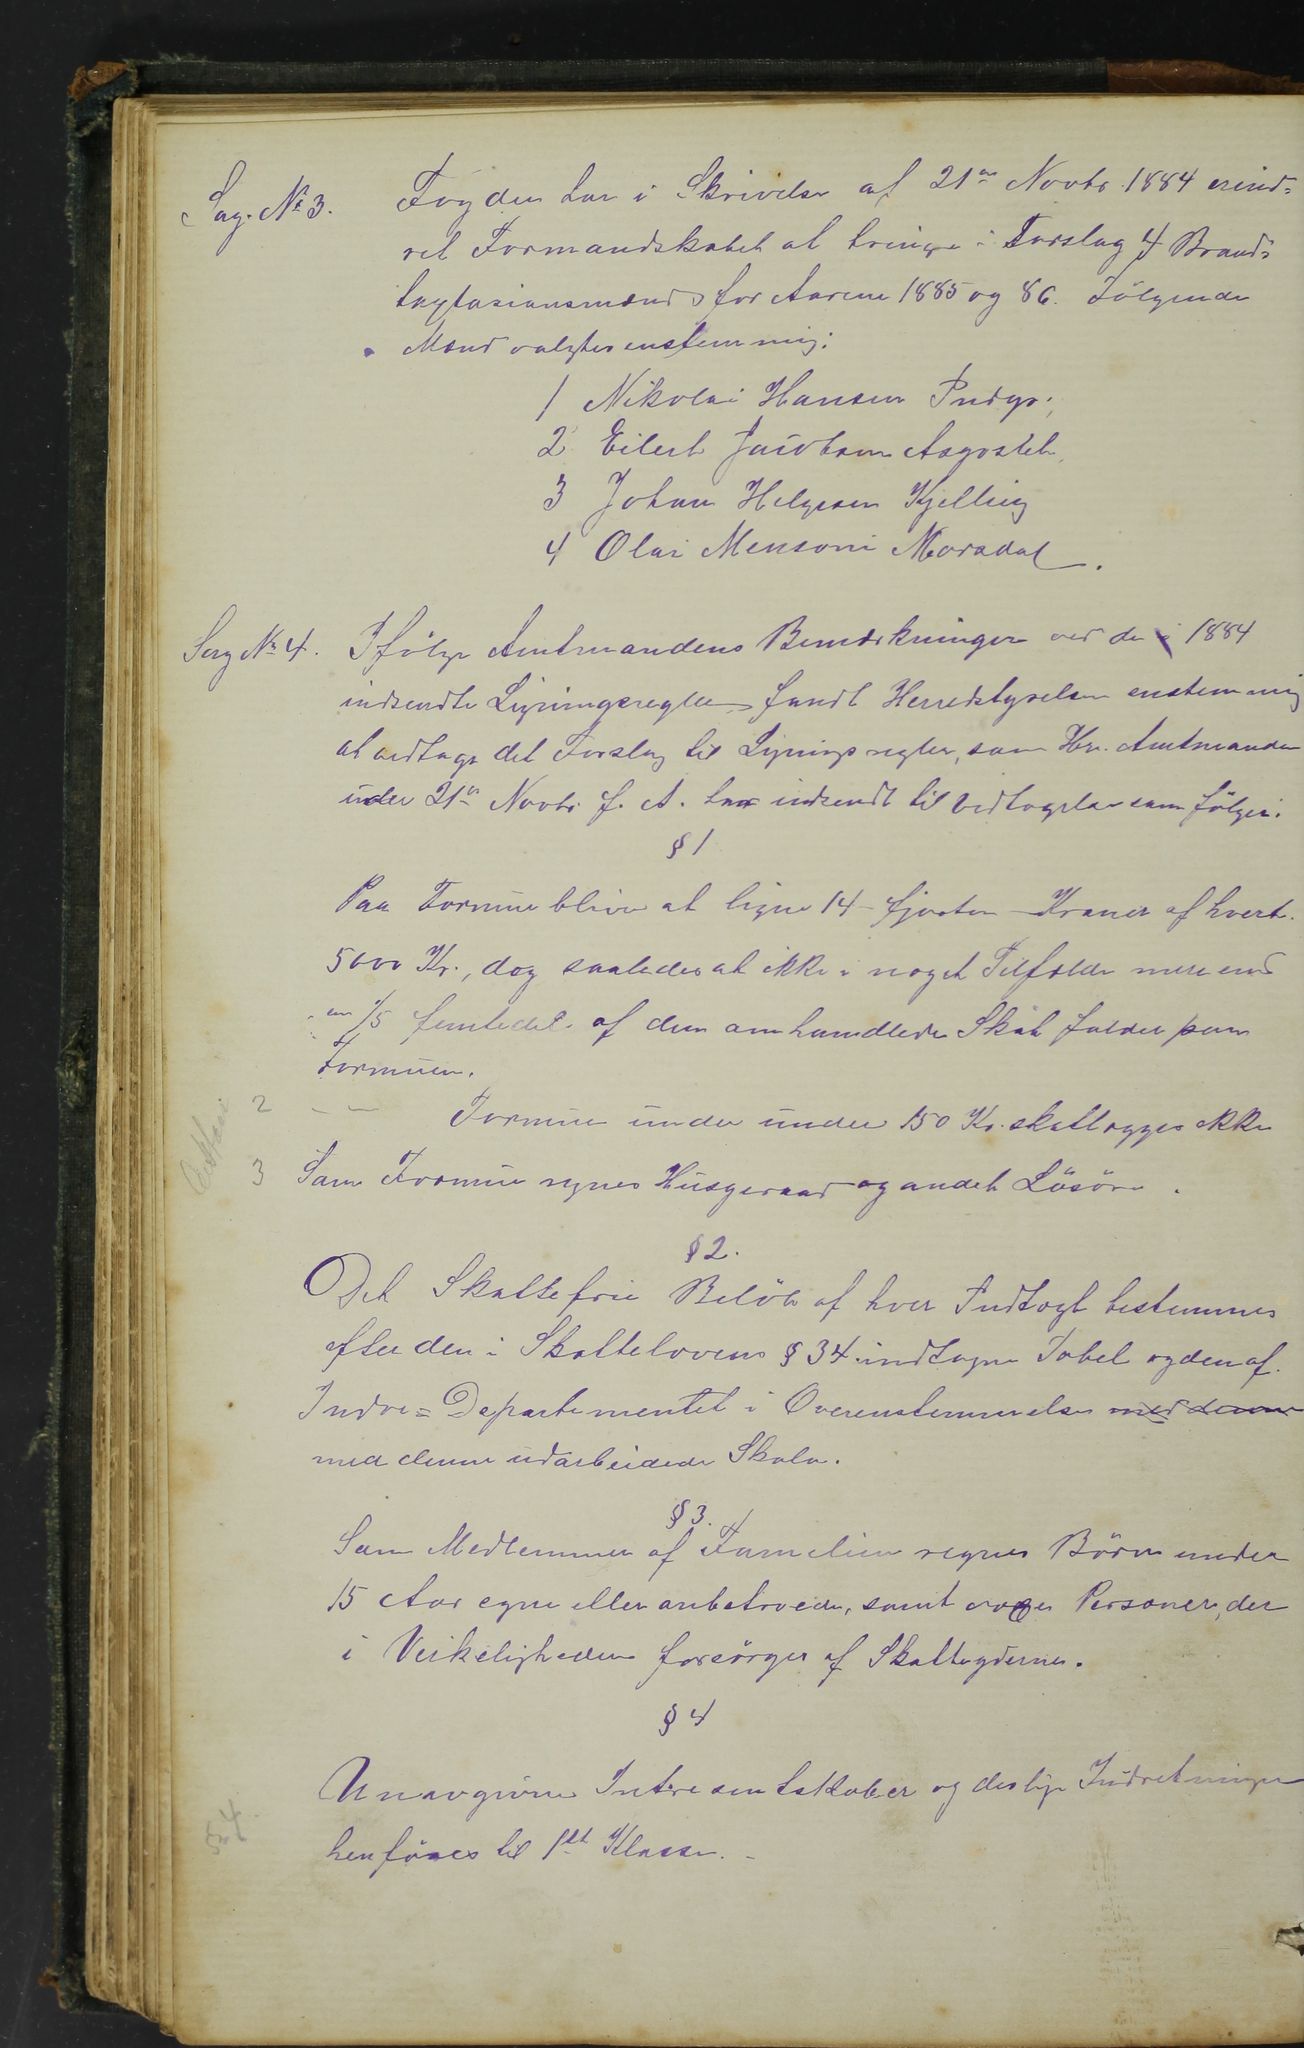 Sag. № 3. Fogden har i Skrivelse af 21de Novbr. 1884 erind=
ret Formandskabet at bringe i Forslag 4 Brand=
taxtasionsmænd for Aarene 1885 og 86. Følgende
Mænd valgtes enstemmig:
1 Nikolai Hansen Indyr.
2 Eilert Jacobsen
3 Johan Helgesen Kjelling
4 Olai Mensoni Morsdal.
Sag № 4. Ifölge Amtmandens Bemærkninger ved de i 1884
indsendte Ligningsregler fandt Herredstyrelsen enstemmig
at vedtage det Forslag til Lignings regler, som Hr. Amtmanden
under 21de Novbr. f. A. har indsendt til Vedtagelse som fölger.
§ 1
Paa Formue bliver at ligne 14 - fjorten - Kroner af hvert
5000 Kr., dog saaledes at ikke i noget Tilfælde mere end
en 1/5 femtedel af den omhandlede Skat falder paa
Formuen.
2 — — Formue under under 150 Kr. skatlægges ikke
3 Som Formue regnes Husgeraad og andet Lösöre.
§ 2.
Det Skattefrie Belöb af hver Indtægt bestemmes
efter den i Skattelovens § 34 indtagne Tabel og den af
Indre= Departementet i Overenstemmelse med denne
med denne udarbeidede Skala.
§ 3.
Som Medlemmer af Familien regnes Börn under
15 Aar egne eller anbetroede, samt voxne Personer, der
i Veikeligheden forsörges af Skatteyderne.
§ 4
Unavgivne Interesentskaber og deslige Indretninger
henföres til 1ste Klasse. -
54.